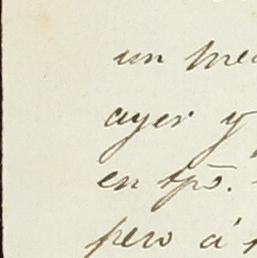 un
ayer y
en tpō.
pero á